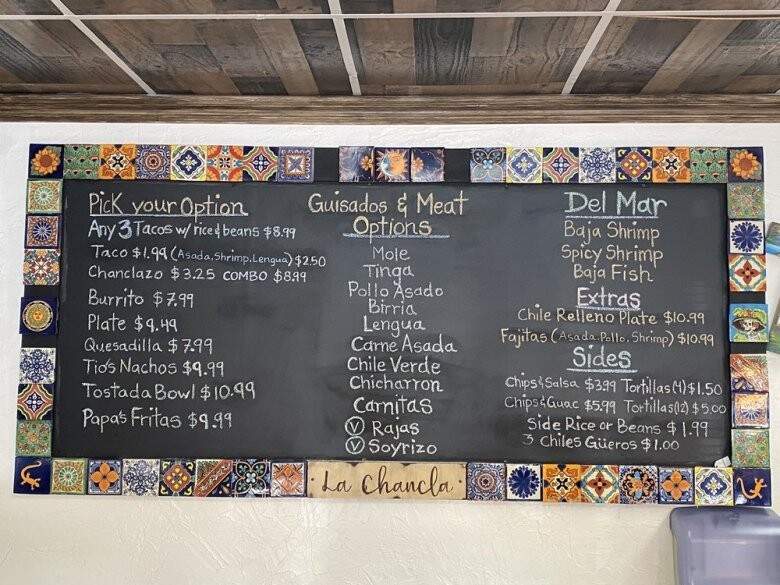 Pick your Option
Any 3 Tacos w/ rice & beans $8.99
Taco $1.99 (Asada, Shrimp, Lengua) $2.50
Chanclazo $3.25 COMBO $8.99
Burrito $7.99
Plate $9.49
Quesadilla $7.99
Tio's Nachos $9.99
Tostada Bowl $10.99
Papas Fritas $9.99
Guisados & Meat
Options
Mole
Tinga
Pollo Asado
Birria
Lengua
Carne Asada
Chile Verde
Chicharron
Carnitas
V Rajas
V Soyrizo
Del Mar
Baja Shrimp
Spicy Shrimp
Baja Fish
Extras
Chile Relleno Plate $10.99
Fajitas (Asada, Pollo, Shrimp) $10.99
Sides
Chips & Salsa $3.99 Tortillas (4) $1.50
Chips & Guac $5.99 Tortillas (12) $5.00
Side Rice or Beans $1.99
3 Chiles Güeros $1.00
La Chancla